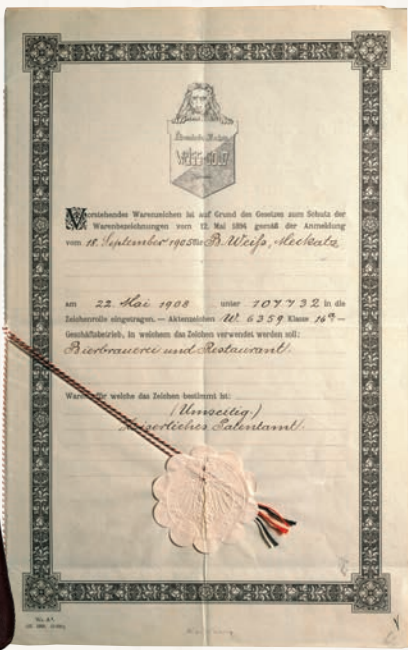 WEISS-GOLD
Vorstehendes Warenzeichen ist auf Grund des Gesetzes zum Schutz der
Warenbezeichnungen vom 12. Mai 1894 gemäß der Anmeldung
vom 18. September 1905 für B. Weiß, Meckatz
am 22. Mai 1908 unter 107732 in die
Zeichenrolle eingetragen. — Aktenzeichen W. 6359 Klasse 16a —
Geschäftsbetrieb, in welchem das Zeichen verwendet werden soll:
Bierbrauerei und Restaurant.
Waren für welche das Zeichen bestimmt ist:
(Umseitig.)
Kaiserliches Patentamt.